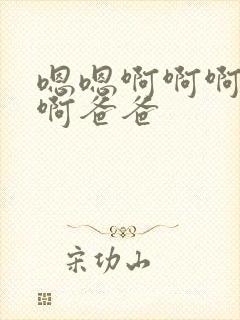 嗯嗯啊啊啊
啊爸爸
宋功山